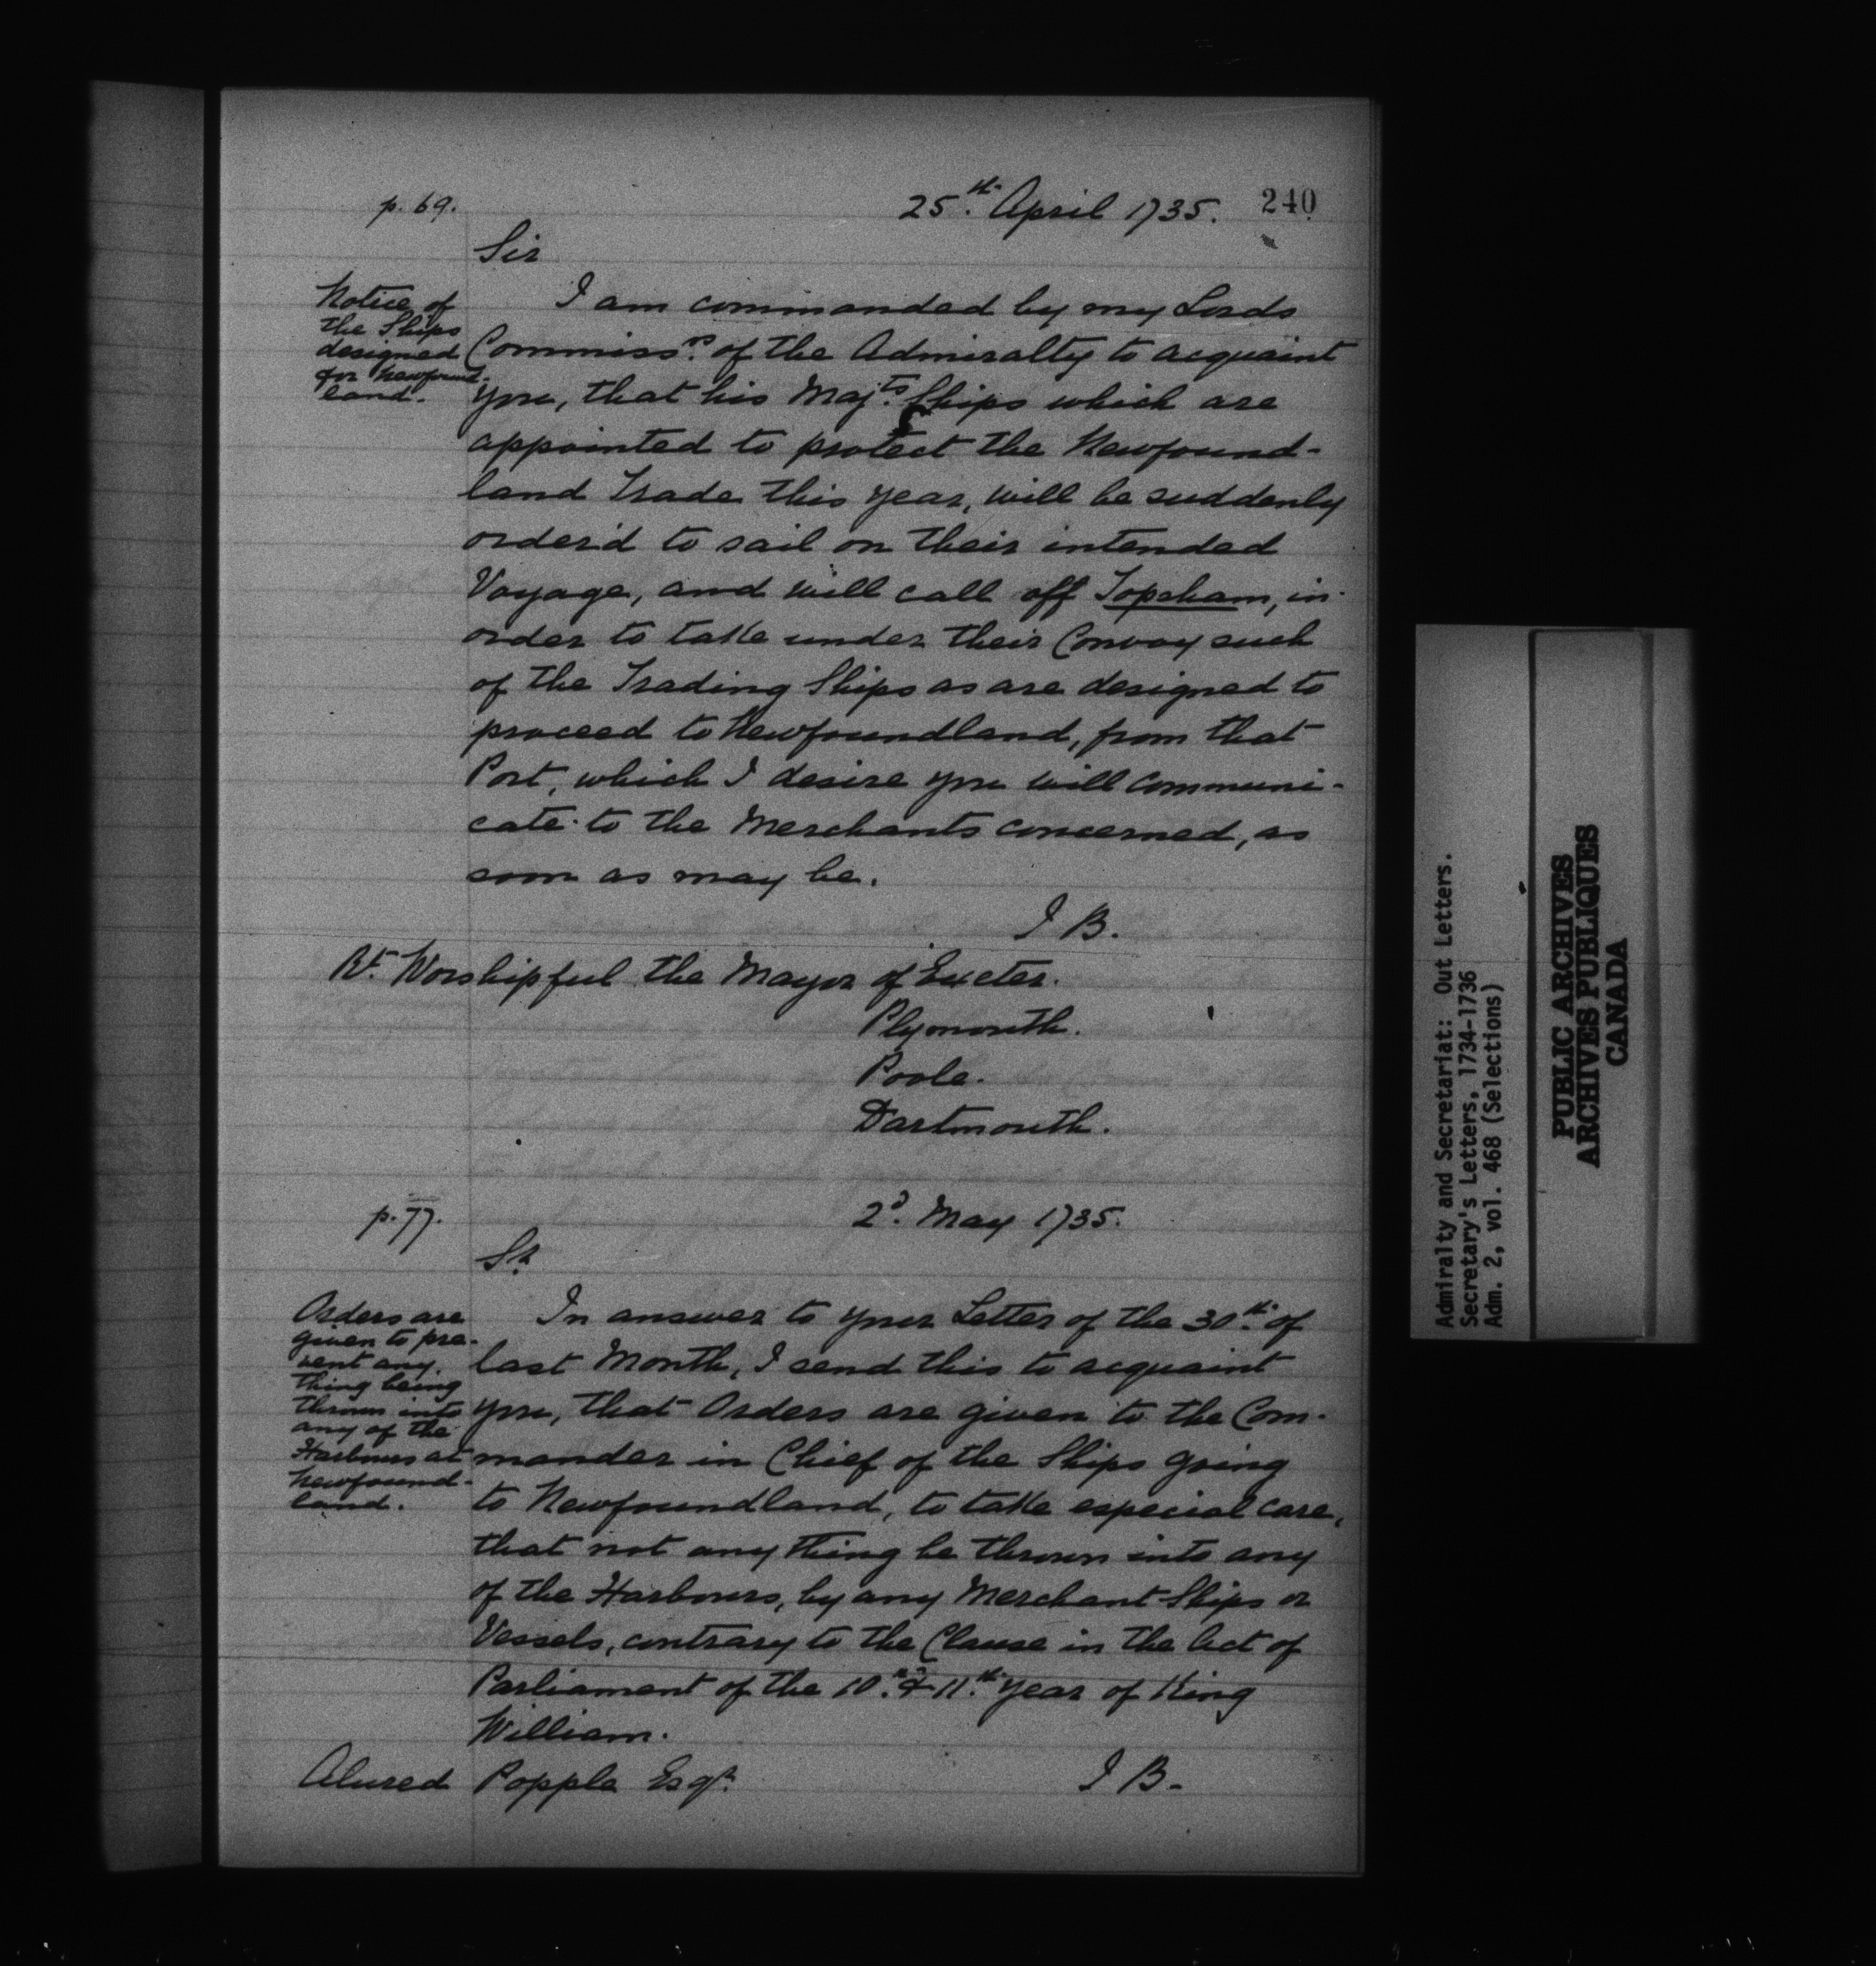 p. 69.
25th. April 1735.
240
Sir
Notice of
the Ships
designed
for Newfound-
land.
I am commanded by my Lords
Commissrs. of the Admiralty to acquaint
you, that his Majts. Ships which are
appointed to protect the Newfound-
land Trade this year, will be suddenly
order'd to sail on their intended
Voyage, and will call off Topsham, in
order to take under their Convoy such
of the Trading Ships as are designed to
proceed to Newfoundland, from that
Port, which I desire you will communi-
cate to the Merchants concerned, as
soon as may be.
J B.
Rt. Worshipful the Mayor of Exeter.
Plymouth.
Poole.
Dartmouth.
p. 77.
2d. May 1735.
Sr.
Orders are
given to pre-
vent any
thing being
thrown into
any of the
Harbours at
Newfound-
land.
In answer to your Letter of the 30th. of
last Month, I send this to acquaint
you, that Orders are given to the Com-
mander in Chief of the Ships going
to Newfoundland, to take especial care,
that not any thing be thrown into any
of the Harbours, by any Merchant Ships or
Vessels, contrary to the Clause in the Act of
Parliament of the 10th. & 11th. year of King
William.
Alured Popple Esqr.
J B.
Admiralty and Secretariat: Out Letters.
Secretary's Letters, 1734-1736
Adm. 2, vol. 468 (Selections)
PUBLIC ARCHIVES
ARCHIVES PUBLIQUES
CANADA